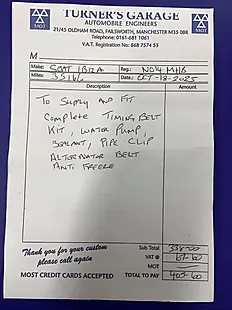 TURNER'S GARAGE
AUTOMOBILE ENGINEERS
21/45 OLDHAM ROAD, FAILSWORTH, MANCHESTER M35 0BR
Telephone: 0161-681 1061
V.A.T. Registration No: 868 7574 53
MOT
MOT
M
Make: SEAT IBIZA Reg.: NO14 MHB
Miles: 35166 Date: OCT-13-2025
Description Amount
TO SUPPLY AND FIT
COMPLETE TIMING BELT
KIT, WATER PUMP,
SEALANT, PIPE CLIP
ALTERNATOR BELT
ANTI FREEZE
Thank you for your custom
please call again
MOST CREDIT CARDS ACCEPTED
Sub Total 338-00
VAT @ 67-60
MOT
TOTAL TO PAY 405-60